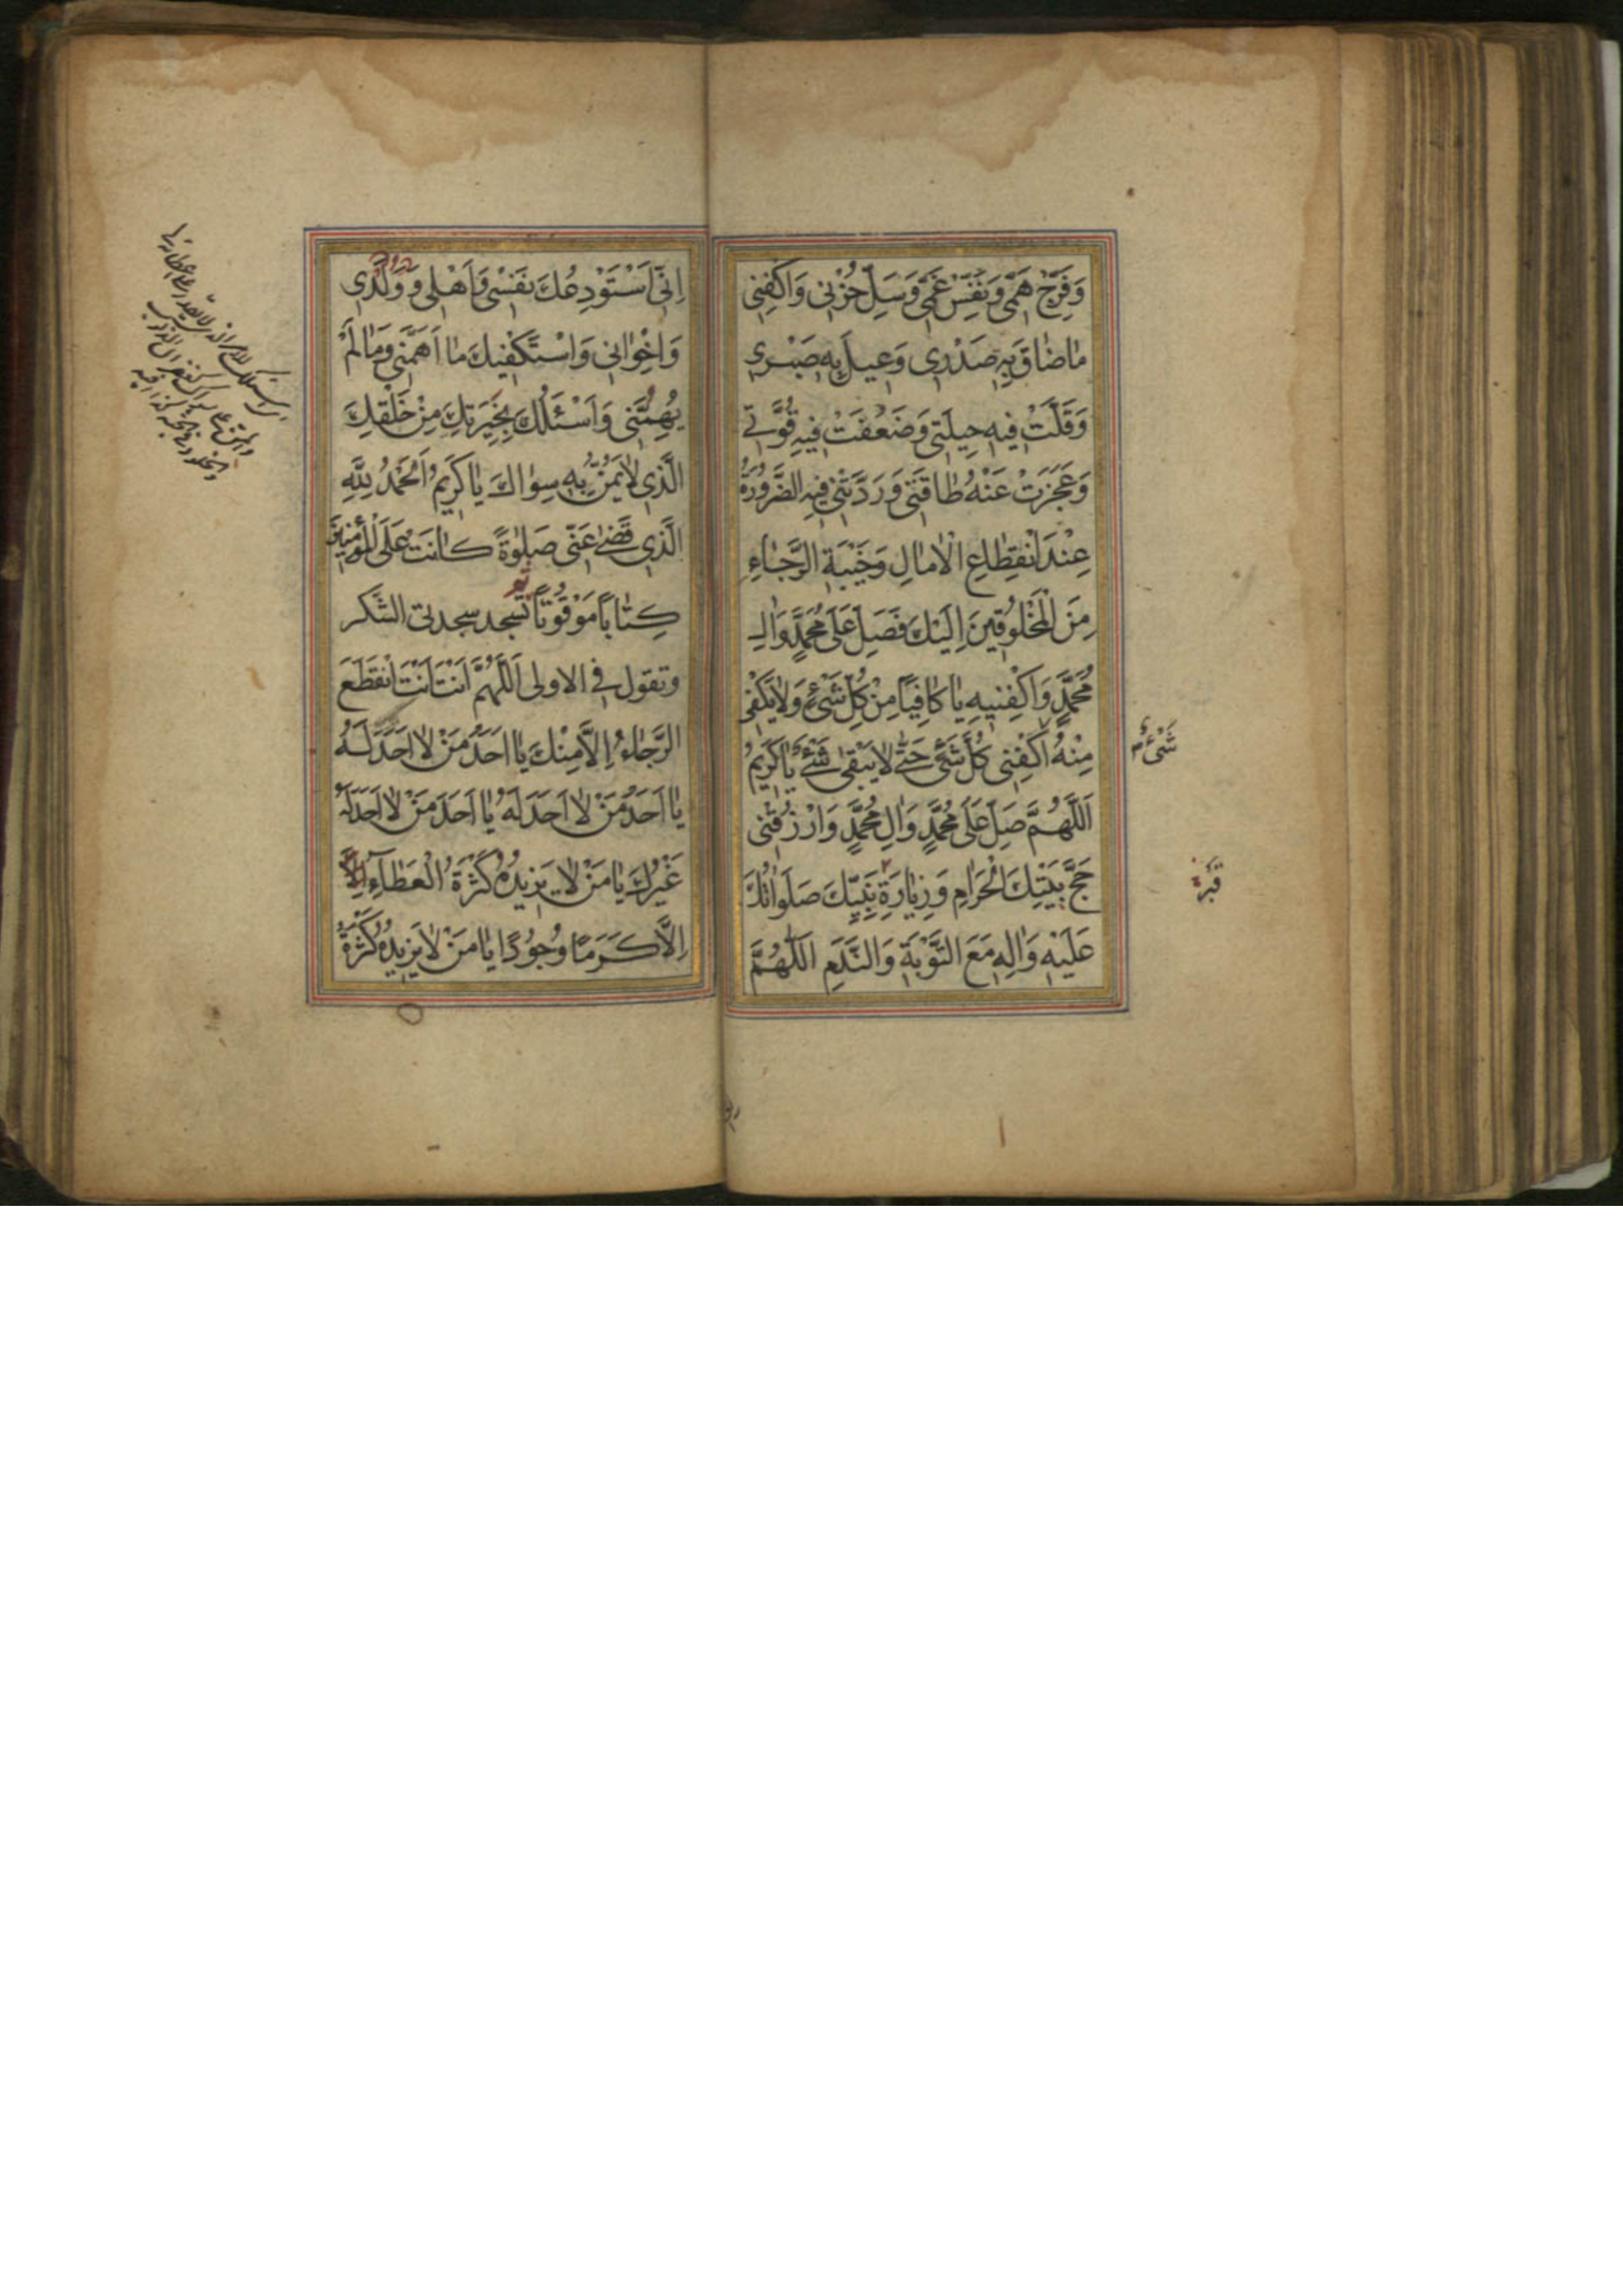 وَفَرِّجْ هَمّی وَنَفِّسْ غَمّی وَسَلِّ حُزْنی وَاكْفِنی
مٰا ضٰاقَ بِهِ صَدْری وَعیلَ بِهِ صَبْری
وَقَلَّتْ فیهِ حیلَتی وَضَعُفَتْ فیهِ قُوَّتی
وَعَجَزَتْ عَنْهُ طٰاقَتی وَرَدَّتْنی فیهِ الضَّرُورَةُ
عِنْدَ انْقِطٰاعِ الْاٰمٰالِ وَخَیْبَةِ الرَّجٰاءِ
مِنَ الْمَخْلُوقینَ اِلَیْكَ فَصَلِّ عَلٰی مُحَمَّدٍ وَاٰلِ
مُحَمَّدٍ وَاكْفِنیهِ یٰا كٰافِیًا مِنْ كُلِّ شَیْءٍ وَلٰا یَكْفی
مِنْهُ اكْفِنی كُلَّ شَیْءٍ حَتّٰی لٰا یَبْقٰی شَیْءٌ یٰا كَریمُ
شَیْءٌ
اَللّٰهُمَّ صَلِّ عَلٰی مُحَمَّدٍ وَاٰلِ مُحَمَّدٍ وَارْزُقْنی
حَجَّ بَیْتِكَ الْحَرٰامِ وَزِیٰارَةَ نَبِیِّكَ صَلَوٰاتُكَ
قَبْرِ
عَلَیْهِ وَاٰلِهِ مَعَ التَّوْبَةِ وَالنَّدَمِ اَللّٰهُمَّ
اِنّی اَسْتَوْدِعُكَ نَفْسی وَاَهْلی وَوَلَدی
وَاِخْوٰانی وَاَسْتَكْفیكَ مٰا اَهَمَّنی وَمٰا لَمْ
یُهِمَّنی وَاَسْئَلُكَ بِخِیَرَتِكَ مِنْ خَلْقِكَ
الَّذی لٰا یَمُنُّ بِهِ سِوٰاكَ یٰا كَریمُ اَلْحَمْدُ لِلّٰهِ
الَّذی قَضٰی عَنّی صَلٰوةً كٰانَتْ عَلَی الْمُؤْمِنینَ
كِتٰابًا مَوْقُوتًا تسجد سجدتی الشكر
وتقول فی الاولی اَللّٰهُمَّ اَنْتَ اَنْتَ انْقَطَعَ
الرَّجٰاءُ اِلّٰا مِنْكَ یٰا اَحَدَ مَنْ لٰا اَحَدَ لَهُ
یٰا اَحَدَ مَنْ لٰا اَحَدَ لَهُ یٰا اَحَدَ مَنْ لٰا اَحَدَ لَهُ
غَیْرُكَ یٰا مَنْ لٰا یَزیدُهُ كَثْرَةُ الْعَطٰآءِ اِلّٰا
اِلّٰا كَرَمًا وَجُودًا یٰا مَنْ لٰا یَزیدُهُ كَثْرَةُ